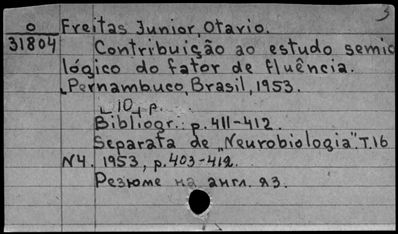 3
o Freitas Junior, Otavio.
31804 Contribuição ao estudo semio
lógico do fator de fluência.
Pernambuco, Brasil, 1953.
10 p.
Bibliogr.: p. 411-412.
Separata de „Neurobiologia". T.16
N4. 1953, p. 403-412.
Резюме на англ. яз.